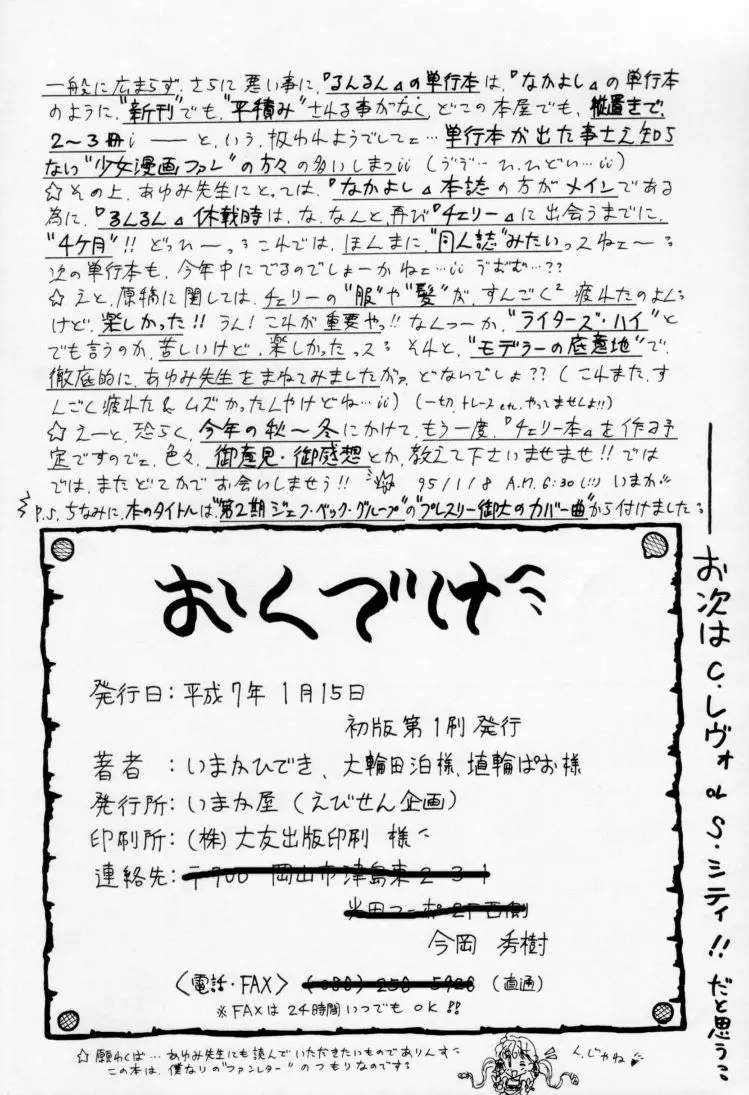 一般に広まらず、さらに悪い事に、『るんるん』の単行本は、『なかよし』の単行本
のように、"新刊"でも、"平積み"される事がなく、どこの本屋でも、縦置きで、
2～3冊 ── と、いう、扱われようでしてェ…単行本が出た事さえ知ら
ない"少女漫画ファン"の方々の多いしまつ (うぞ… ひ、ひどい…)
☆その上、あゆみ先生にとっては、『なかよし』本誌の方がメインである
為に、『るんるん』休載時は、な、なんと、再び『チェリー』に出会うまでに、
"4ケ月"!! どっひーっ、これでは、ほんまに、"同人誌"みたいっスねェ～
次の単行本も、今年中にでるのでしょーかねェ… うおむ…??
☆えと、原稿に関しては、チェリーの"服"や"髪"が、すんごく² 疲れたのよん
けど、楽しかった!! うん! これが重要やっ!! なんつーか、"ライターズ・ハイ"と
でも言うのか、苦しいけど、楽しかったっス それと、"モデラーの底意地"で、
徹底的に、あゆみ先生をまねてみましたがァ、どないでしょ?? (これまた、す
んごく疲れた& ムズかったんやけどね…) (一切、トレースetc.やってませんよ!!)
☆えーと、恐らく、今年の秋～冬にかけて、もう一度、『チェリー本』を作る予
定ですのでェ、色々、御意見・御感想とか、教えて下さいませませ!! では
では、またどこかでお会いしませう!! 95/1/8 A.M.6:30(!!) いまか
P.S. ちなみに、本のタイトルは、"第2期ジェフ・ベック・グループ"の"プレスリー御大のカバー曲"から付けました
お次は C.レヴォ or S.シティ!! だと思う
おくづけ
発行日：平成7年1月15日
初版第1刷発行
著者 ：いまかひでき、大輪田泊様、埴輪ぱお様
発行所：いまか屋(えびせん企画)
印刷所：(株)大友出版印刷 様
連絡先：
今岡 秀樹
〈電話・FAX〉 (直通)
※FAXは24時間いつでもOK!!
☆願わくば…あゆみ先生にも読んでいただきたいものでありんす
この本は、僕なりの"ファンレター"のつもりなのです
んじゃね